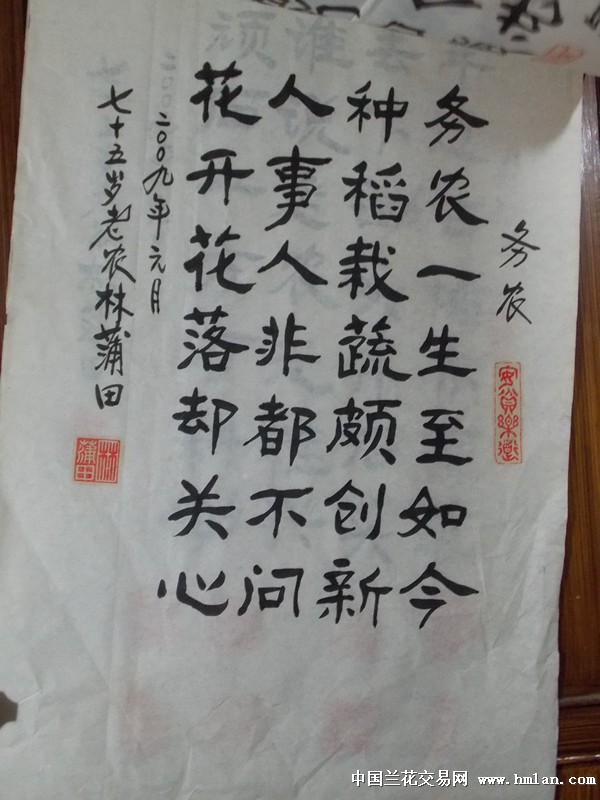 务农
安贫乐道
务农一生至如今
种稻栽蔬颇创新
人事人非都不问
花开花落却关心
二00九年元月
七十五岁老农林蒲田
林蒲田
中国兰花交易网 www.hmlan.com